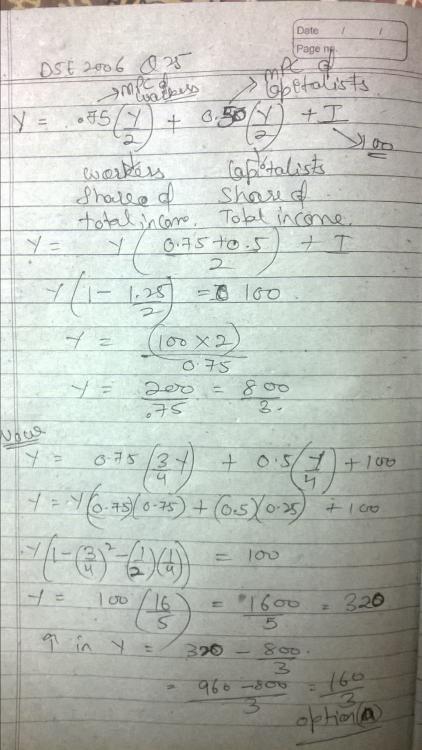 Date / /
Page no.
DSE 2006 Q 25
→ MPC of workers → MPC of Capitalists
Y = .75(Y/2) + 0.50(Y/2) + I
→ 100
workers Capitalists
share of Share of
total income. Total income.
Y = Y(0.75+0.5/2) + I
Y(1 - 1.25/2) = 100
Y = (100 × 2)/0.75
Y = 200/.75 = 800/3.
Now
Y = 0.75(3/4 Y) + 0.5(Y/4) + 100
Y = Y(0.75)(0.75) + (0.5)(0.25) + 100
Y(1-(3/4)²-(1/2)(1/4)) = 100
Y = 100(16/5) = 1600/5 = 320
in Y = 320 - 800/3.
= 960-800/3 = 160/3
option (a)